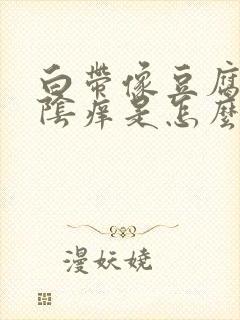 白带像豆腐
陰痒是怎麼
漫妖娆